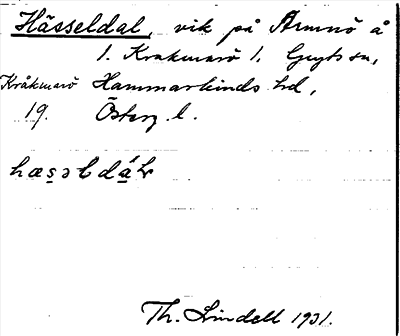 Hässeldal, vik på Ämnö å
l. Kråkmarö l. Gryts sn,
Kråkmarö Hammarkinds hd,
19. Österg. l.
hæsəldáls
Th. Lindell 1931.